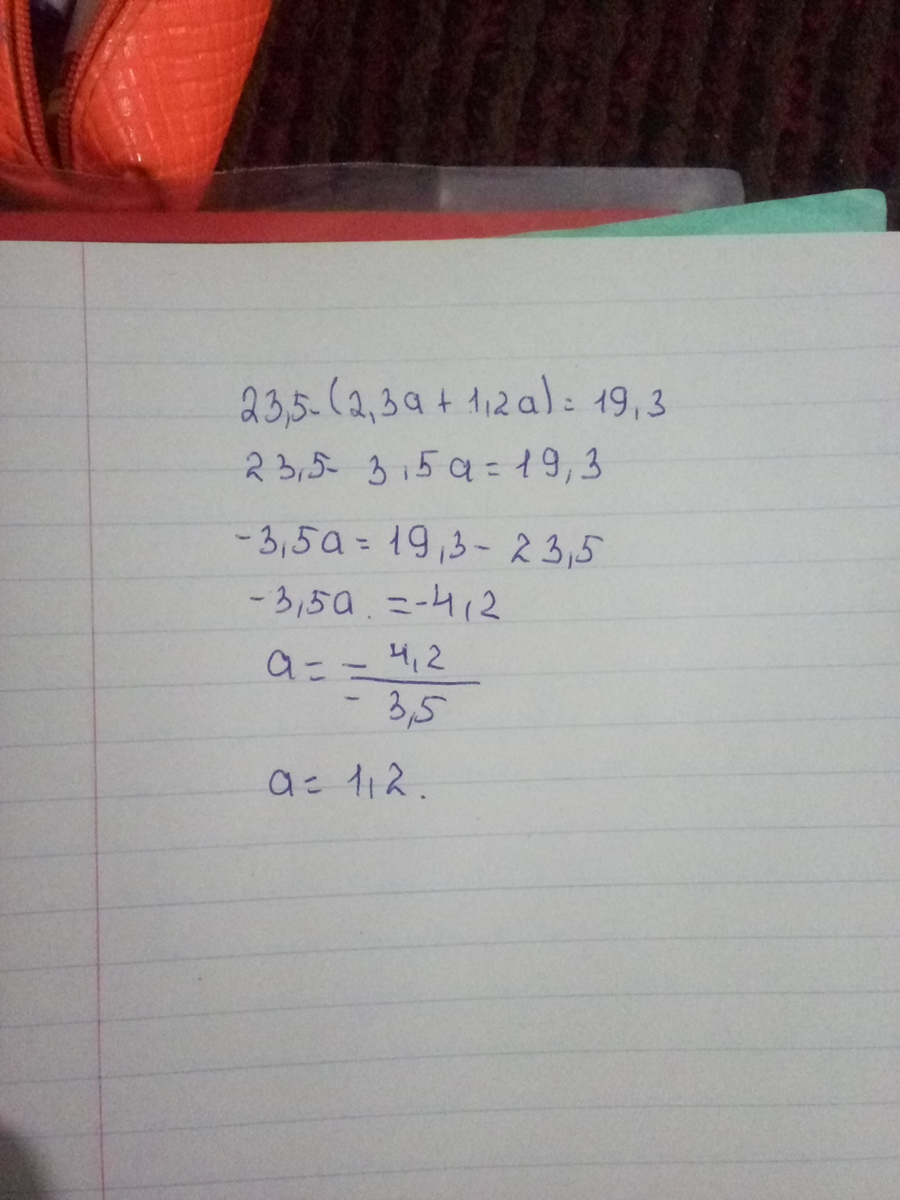 23,5-(2,3a+1,2a)=19,3
23,5-3,5a=19,3
-3,5a=19,3-23,5
-3,5a.=-4,2
a=-4,2/-3,5
a=1,2.